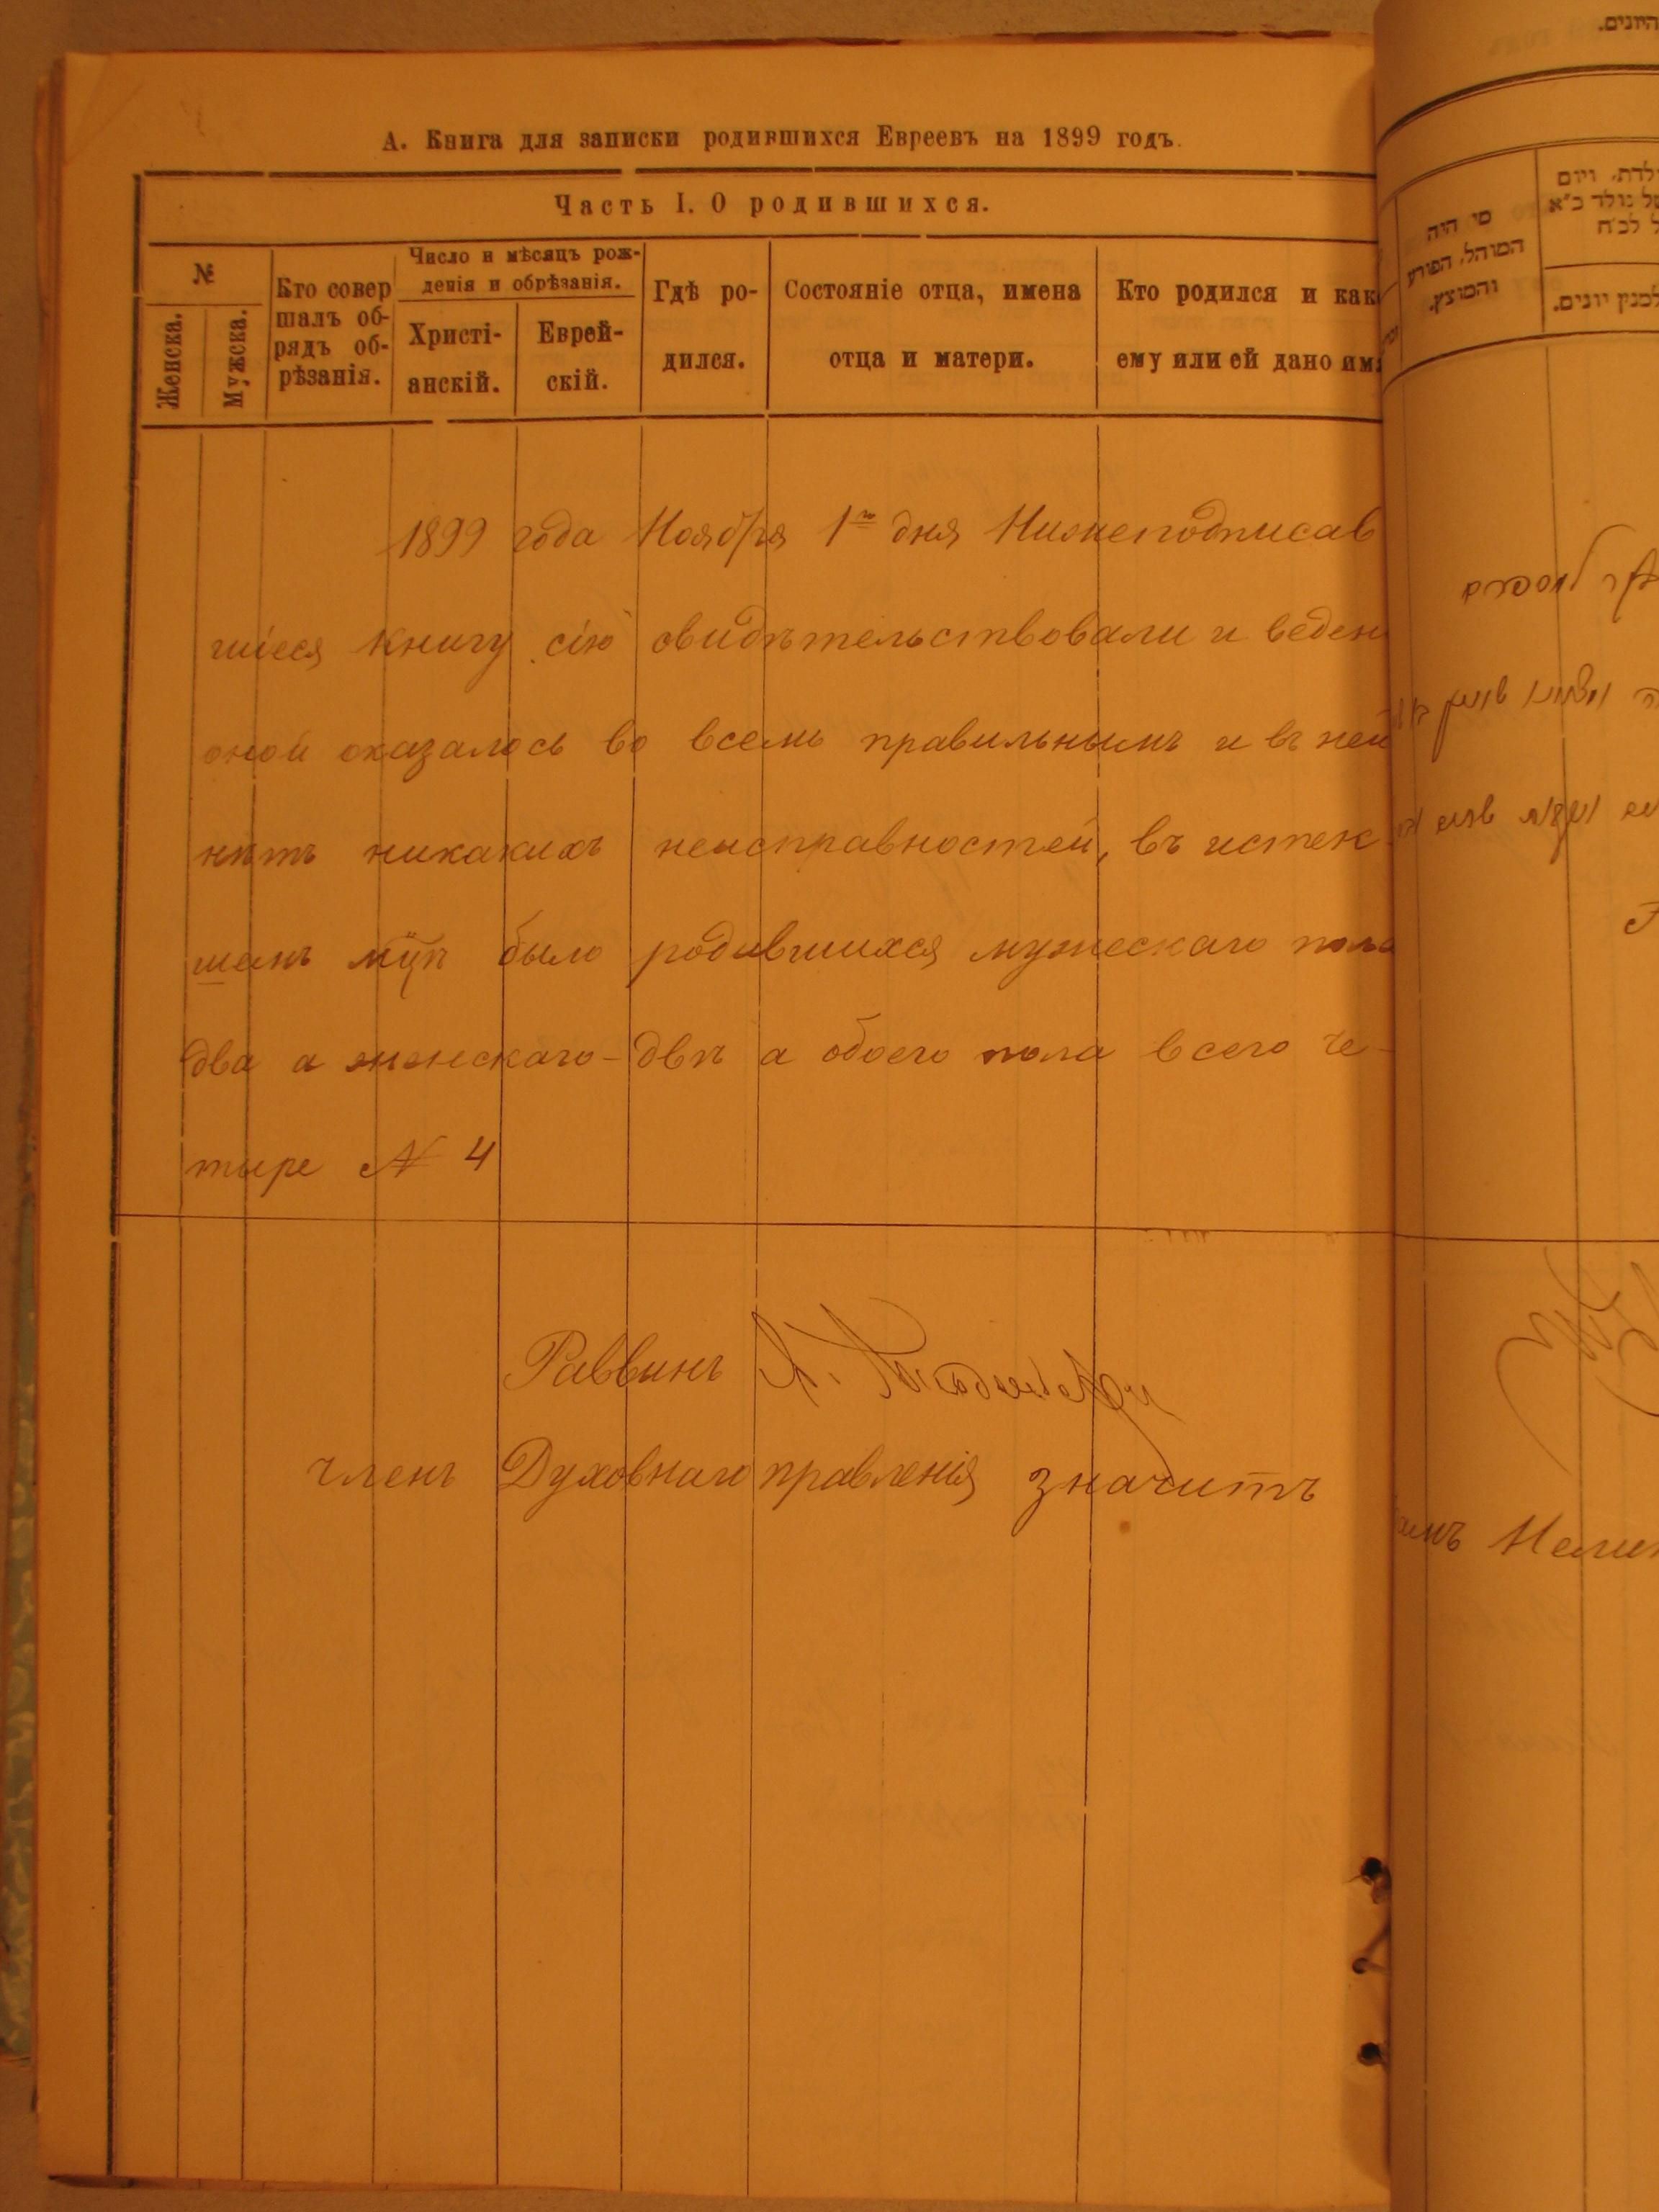 А. Книга для записки родившихся Евреевъ на 1899 годъ.
Часть I. О родившихся.
№
Женска.
Мужска.
Кто совер
шалъ об-
рядъ об-
рѣзанія.
Число и мѣсяцъ рож-
денія и обрѣзанія.
Христі-
анскій.
Еврей-
скій.
Гдѣ ро-
дился.
Состояніе отца, имена
отца и матери.
Кто родился и как
ему или ей дано им
1899 года Ноября 1го дня Нижеподписав
шіеся книгу сію свидѣтельствовали и веден
оной оказалось во всемъ правильнымъ и въ ней
нѣтъ никакихъ неисправностей, въ истек
шемъ м҃цѣ было родившихся мужескаго пола
два а женскаго - двѣ а обоего пола всего че-
тыре № 4
Раввинъ
членъ Духовнаго правленія значитъ
היונים.
מי היה
המוהל, הפורע
והמוצץ.
ולדת, ויום
של נולד כ״א
ל לכ״ח
למנין יונים.